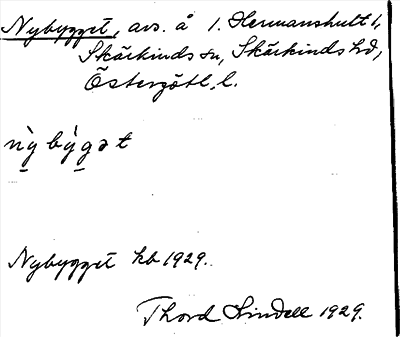 Nybygget, avs. å 1. Hermanshult 1,
Skärkinds sn, Skärkinds hd,
Östergötl. l.
nỳbỳgət
Nybygget kb 1929.
Thord Lindell 1929.